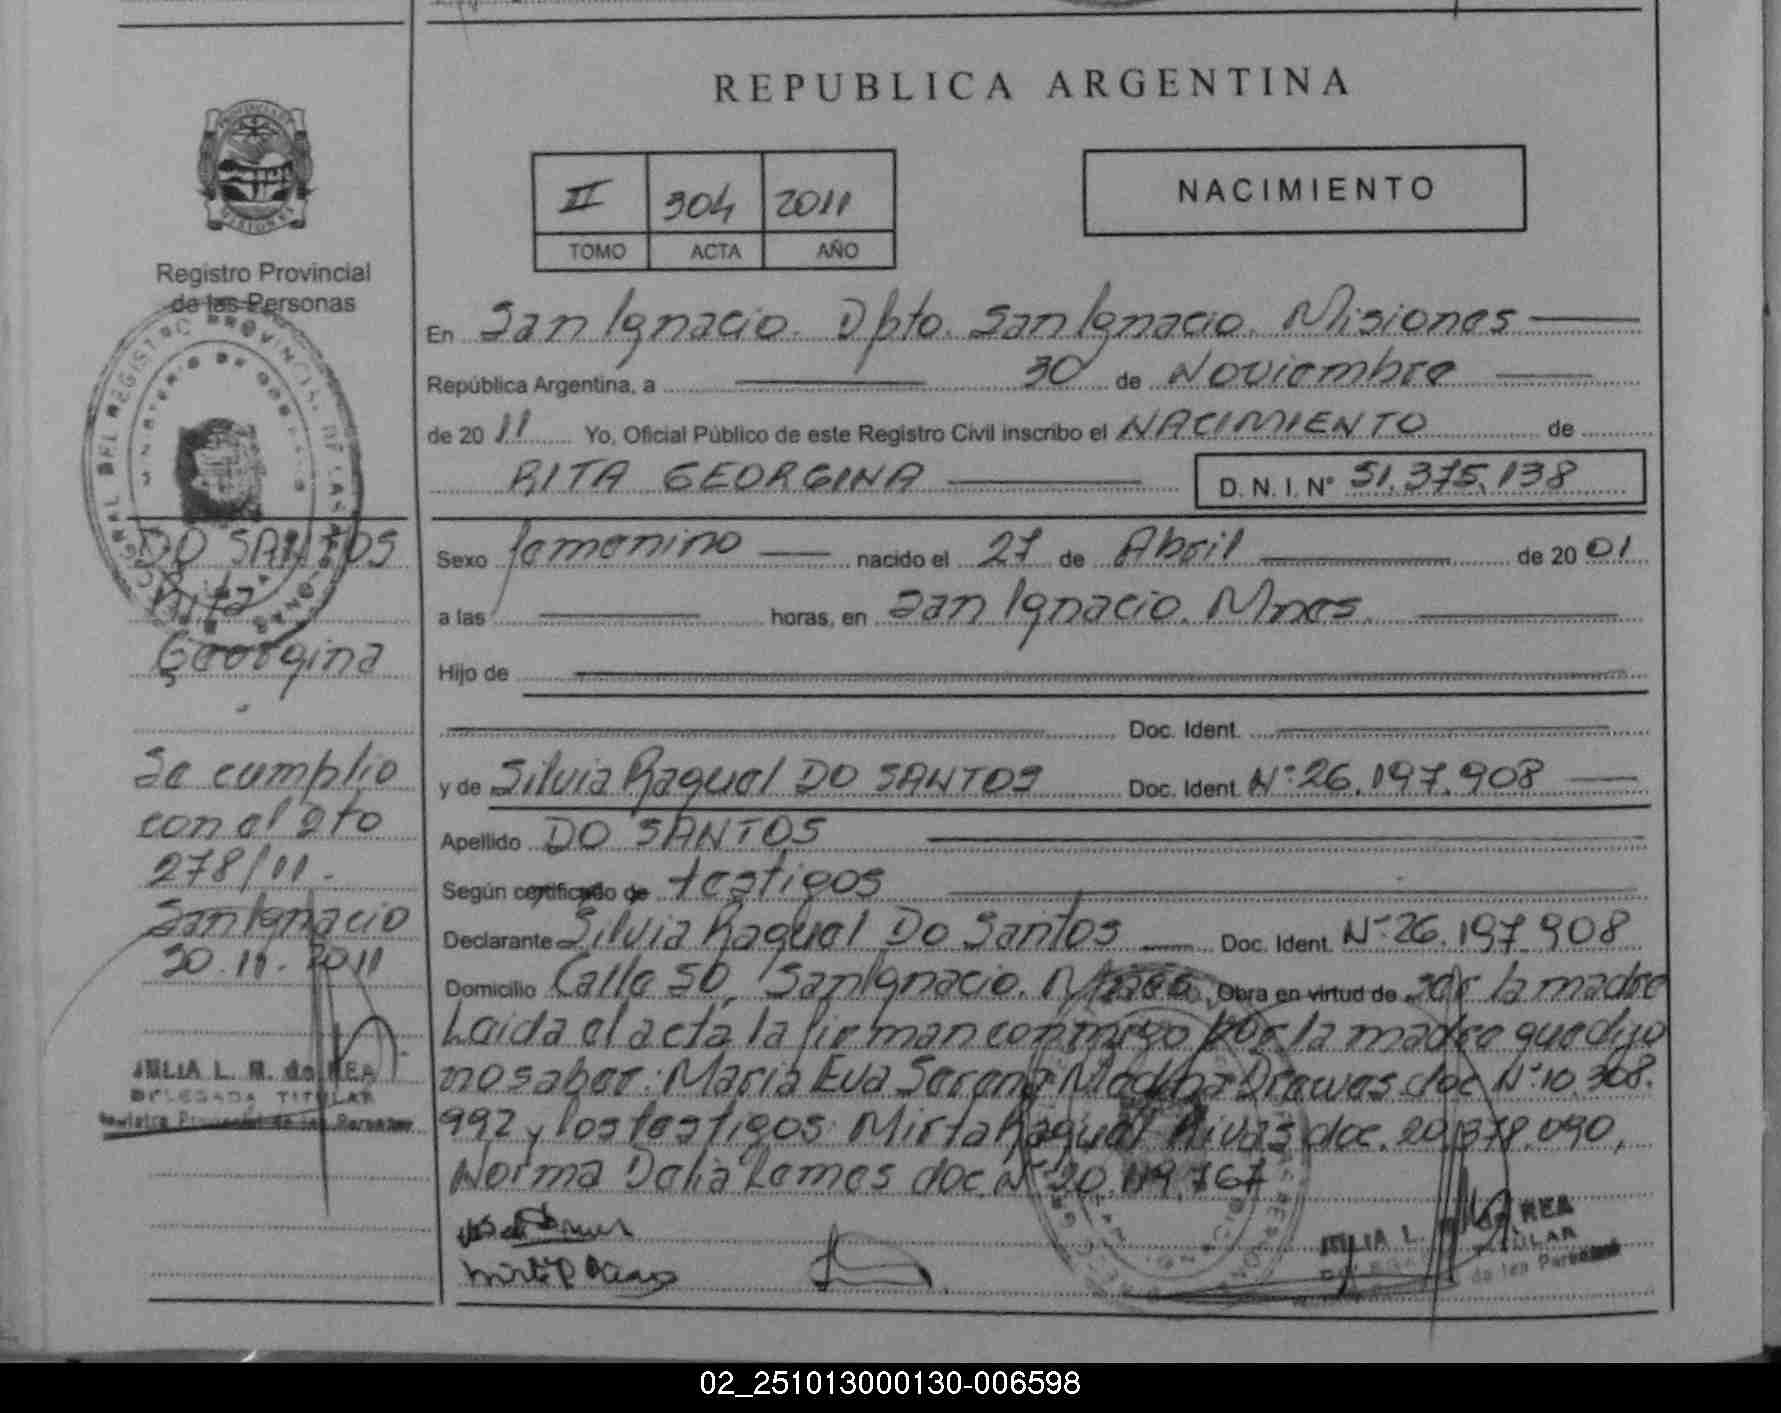 REPUBLICA ARGENTINA
II 304 2011
TOMO ACTA AÑO
NACIMIENTO
PROVINCIA DE MISIONES
Registro Provincial
de las Personas
En San Ignacio. Dpto. San Ignacio. Misiones
República Argentina, a 30 de Noviembre
de 20 11 Yo, Oficial Público de este Registro Civil inscribo el NACIMIENTO de
RITA GEORGINA D. N. I. N° 51.375.138
Sexo femenino nacido el 27 de Abril de 20 01
a las horas, en San Ignacio. Mnes.
Hijo de
Doc. Ident.
y de Silvia Raquel DO SANTOS Doc. Ident. N° 26.197.908
Apellido DO SANTOS
Según certificado de testigos
Declarante Silvia Raquel Do Santos Doc. Ident. N° 26.197.908
Domicilio Calle 50, San Ignacio. Mnes. Obra en virtud de ser la madre
Leida el acta la firman conmigo por la madre que dijo
no saber: Maria Eva Serena Medina Drewes doc N° 10.308.
992 y los testigos: Mirta Raquel Rivas doc. 20.378.090,
Norma Delia Lemes doc N° 20.119.767
DO SANTOS
Rita
Georgina
Se cumplio
con el Dto
278/11.
San Ignacio
30.11.2011
JULIA L. R. de REA
DELEGADA TITULAR
Registro Provincial de las Personas
JULIA L. R. de REA
DELEGADA TITULAR
de las Personas
02_251013000130-006598